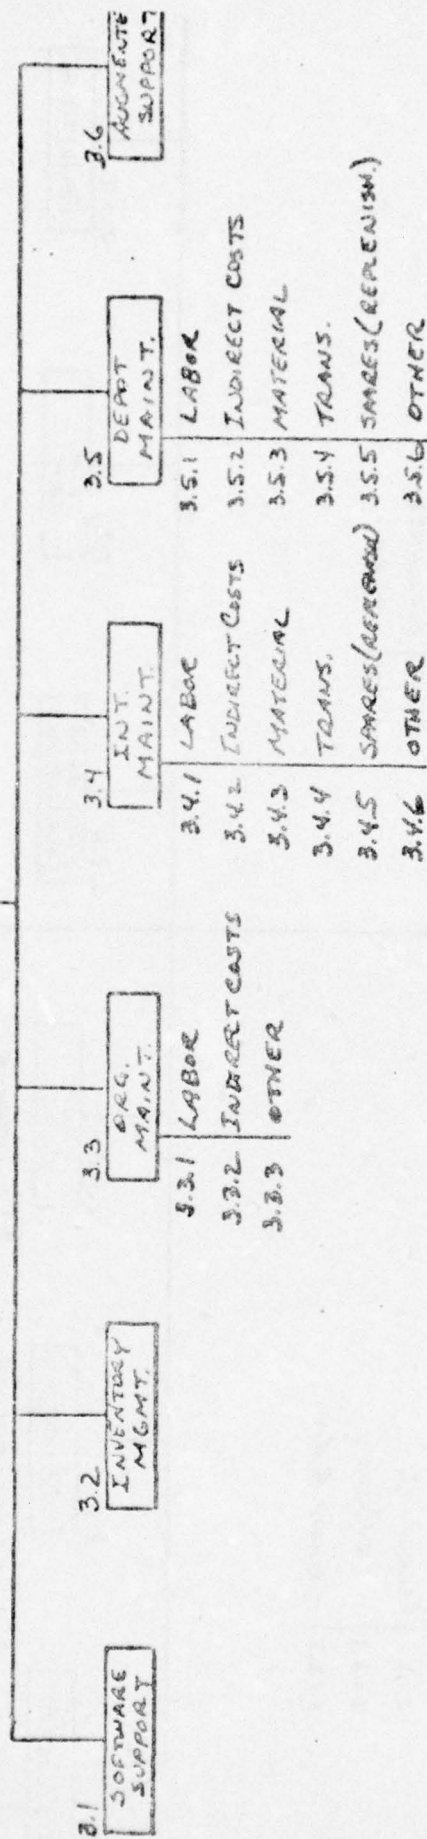 3.1
SOFTWARE
SUPPORT
3.2
INVENTORY
MGMT.
3.3
ORG.
MAINT.
3.3.1 LABOR
3.3.2 INDIRECT COSTS
3.3.3 OTHER
3.4
INT.
MAINT.
3.4.1 LABOR
3.4.2 INDIRECT COSTS
3.4.3 MATERIAL
3.4.4 TRANS.
3.4.5 SPARES
3.4.6 OTHER
3.5
DEPOT
MAINT.
3.5.1 LABOR
3.5.2 INDIRECT COSTS
3.5.3 MATERIAL
3.5.4 TRANS.
3.5.5 SPARES (REPLENISH.)
3.5.6 OTHER
3.6
AUGMENTE
SUPPORT